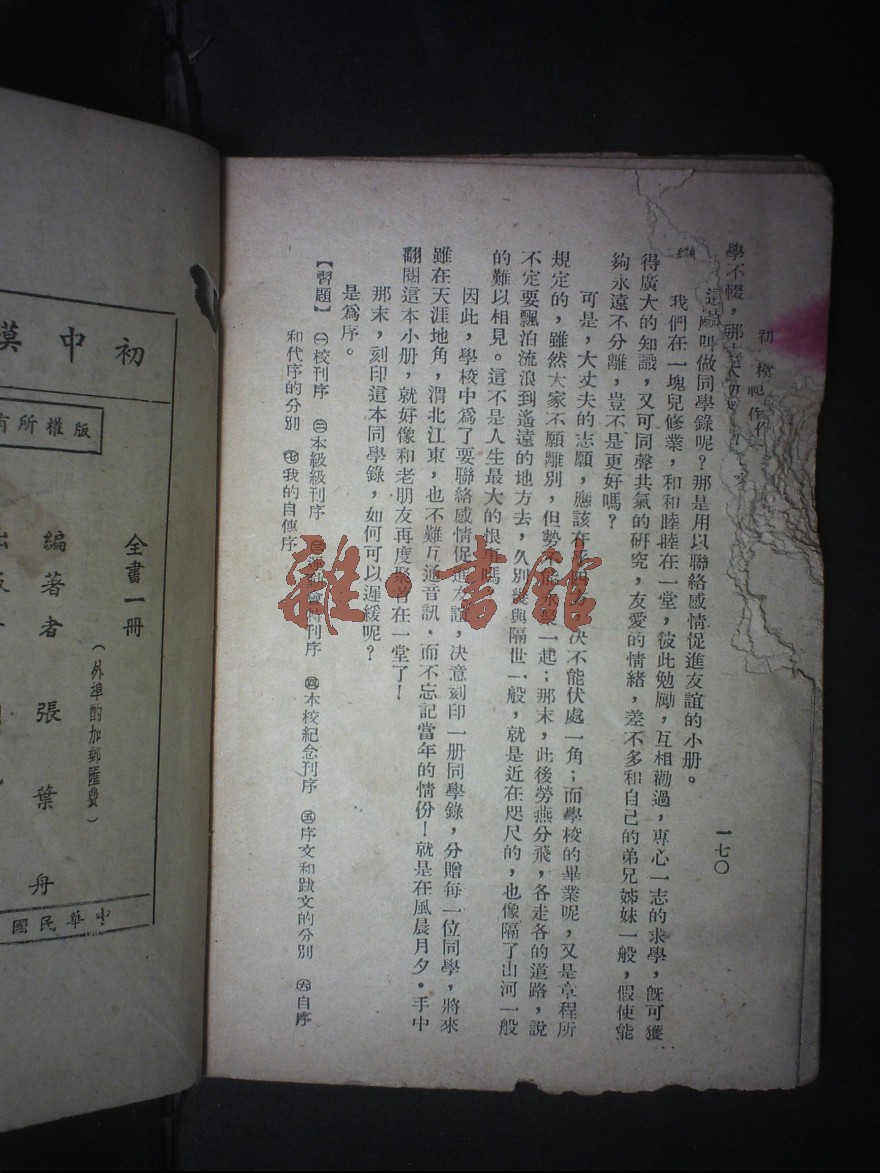 一七〇
學不輟，那
叫做同學錄呢？那是用以聯絡感情促進友誼的小册。
我們在一塊兒修業，和和睦睦在一堂，彼此勉勵，互相勸過，專心一志的求學，旣可獲
得廣大的知識，又可同聲共氣的研究，友愛的情緒，差不多和自己的弟兄姊妹一般，假使能
夠永遠不分離，豈不是更好嗎？
可是，大丈夫的志願，應該在 決不能伏處一角；而學校的畢業呢，又是章程所
規定的，雖然大家不願離別，但勢不 一起；那末，此後勞燕分飛，各走各的道路，說
不定要飄泊流浪到遙遠的地方去，久別 與隔世一般，就是近在咫尺的，也像隔了山河一般
的難以相見。這不是人生最大的恨 嗎
因此，學校中爲了要聯絡感情促進友誼，決意刻印一册同學錄，分贈每一位同學，將來
雖在天涯地角，渭北江東，也不難互通音訊，而不忘記當年的情份！就是在風晨月夕。手中
翻閱這本小册，就好像和老朋友再度聚首在一堂了！
那末，刻印這本同學錄，如何可以遲緩呢？
是爲序。
【習題】 ㊀校刊序 ㊁本級級刊序 ㊂ 特刊序 ㊃本校紀念刊序 ㊄序文和跋文的分別 ㊅自序
和代序的分別 ㊆我的自傳序
初中模
版權所有
全書一册
（外埠酌加郵匯費）
編著者 張葉舟
中華民國
雜·書館